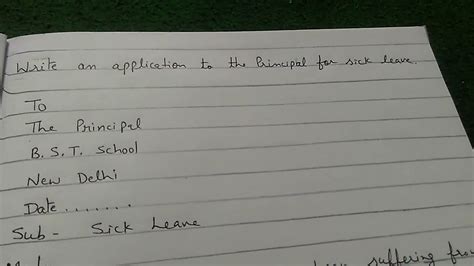 Write an application to the Principal for sick leave.
To
The Principal
B. S. T. School
New Delhi
Date.......
Sub - Sick Leave
suffering from